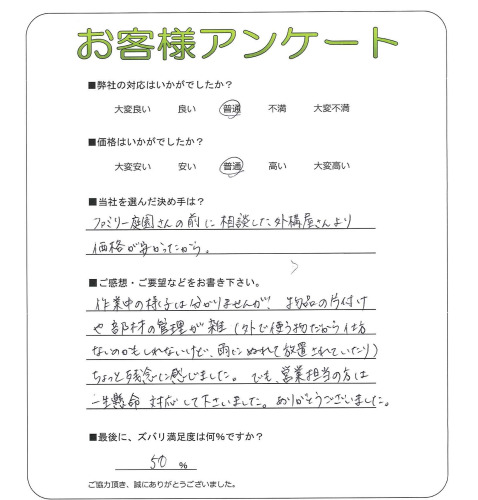 お客様アンケート
■弊社の対応はいかがでしたか？
大変良い 良い 普通 不満 大変不満
■価格はいかがでしたか？
大変安い 安い 普通 高い 大変高い
■当社を選んだ決め手は？
ファミリー庭園さんの前に相談した外構屋さんより
価格が安かったから。
■ご感想・ご要望などをお書き下さい。
作業中の様子は分かりませんが、物品の片付け
や部材の管理が雑（外で使う物だから仕方
ないのかもしれないけど、雨にぬれて放置されていたり）
ちょっと残念に感じました。でも、営業担当の方は
一生懸命対応して下さいました。ありがとうございました。
■最後に、ズバリ満足度は何％ですか？
50 %
ご協力頂き、誠にありがとうございました。